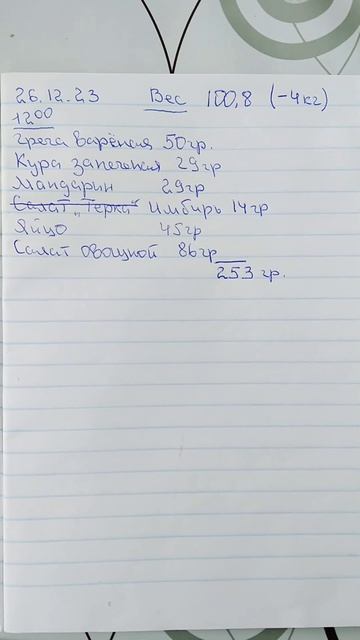 26.12.23 Вес 100,8 (-4кг)
12⁰⁰
Греча варёная 50гр.
Кура запеченая 29гр
Мандарин 29гр
Салат "Терка" Имбирь 14гр
Яйцо 45гр
Салат овощной 86гр
253 гр.